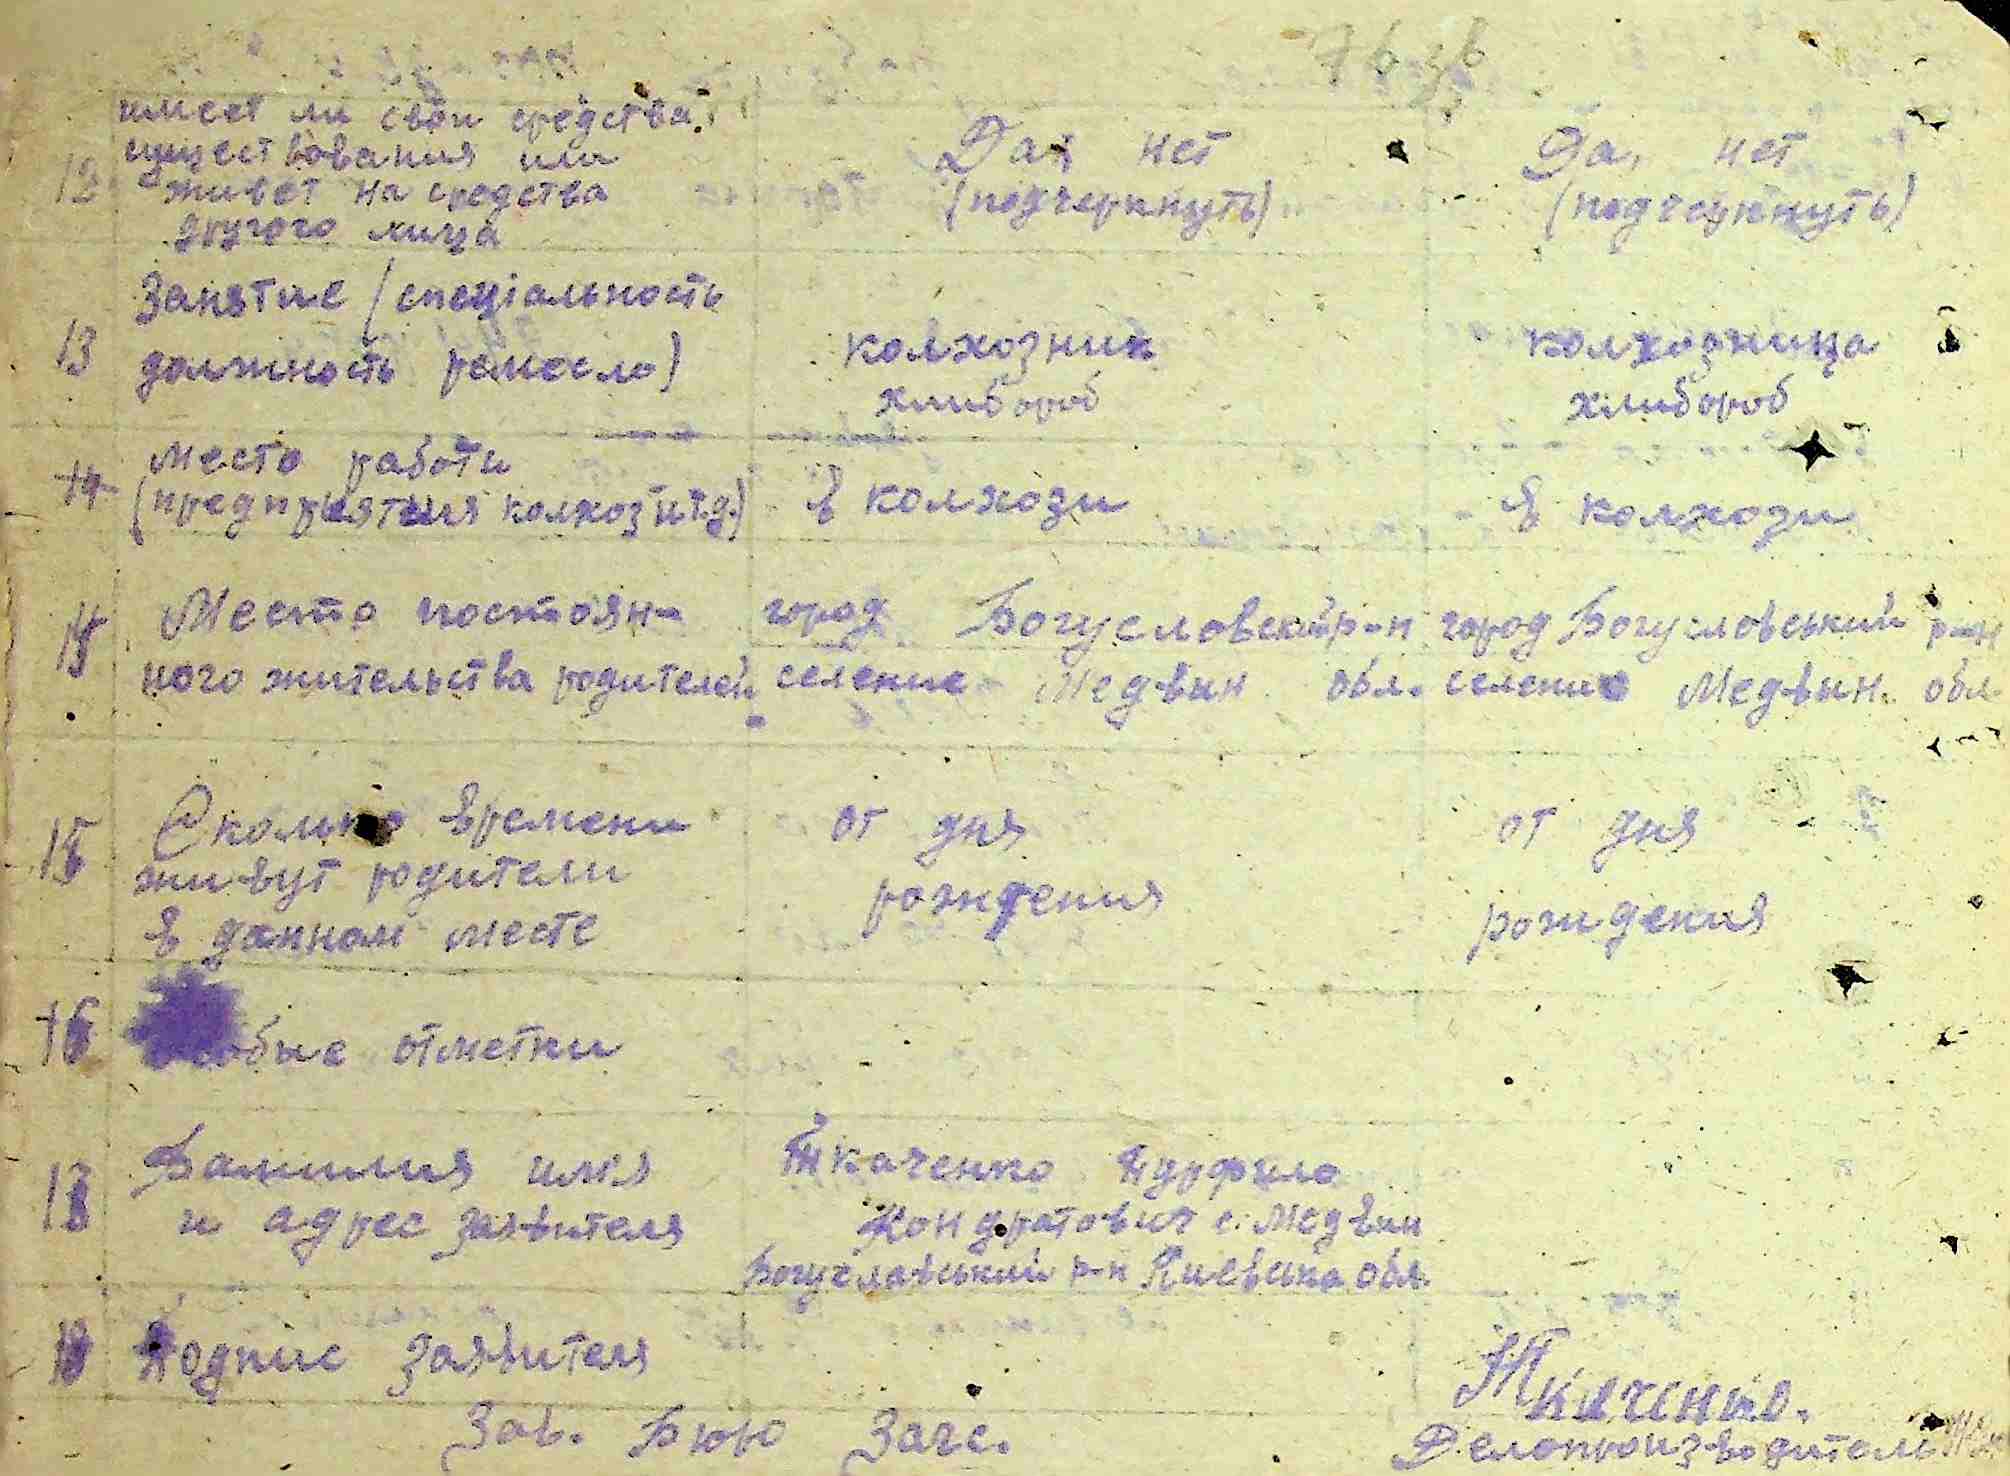 76 зв
имеет ли свои средства
существования или
12 живет на средства
другого лица
Да, нет
(подчеркнуть)
Да, нет
(подчеркнуть)
13 Занятие (специальность
должность ремесло)
колхозник
хлибороб
колхозница
хлибороб
14 Место работи
(предприятия колхоз и т.д.)
в колхози
в колхози
Место постоян-
ного жительства родителей
город Богусловский р-н
селение Медвин обл.
город Богусловський р-н
селение Медвин обл.
15 Сколько времени
живут родители
в данном месте
от дня
рождения
от дня
рождения
16 Особые отметки
17 Фамилия имя
и адрес заявителя
Ткаченко Пурфило
Кондратович с. Медвин
Богуславський р-н Киевська обл.
18 Подпис заявителя
Ткаченко.
Зав. Бюро Загс.
Делопроизводитель